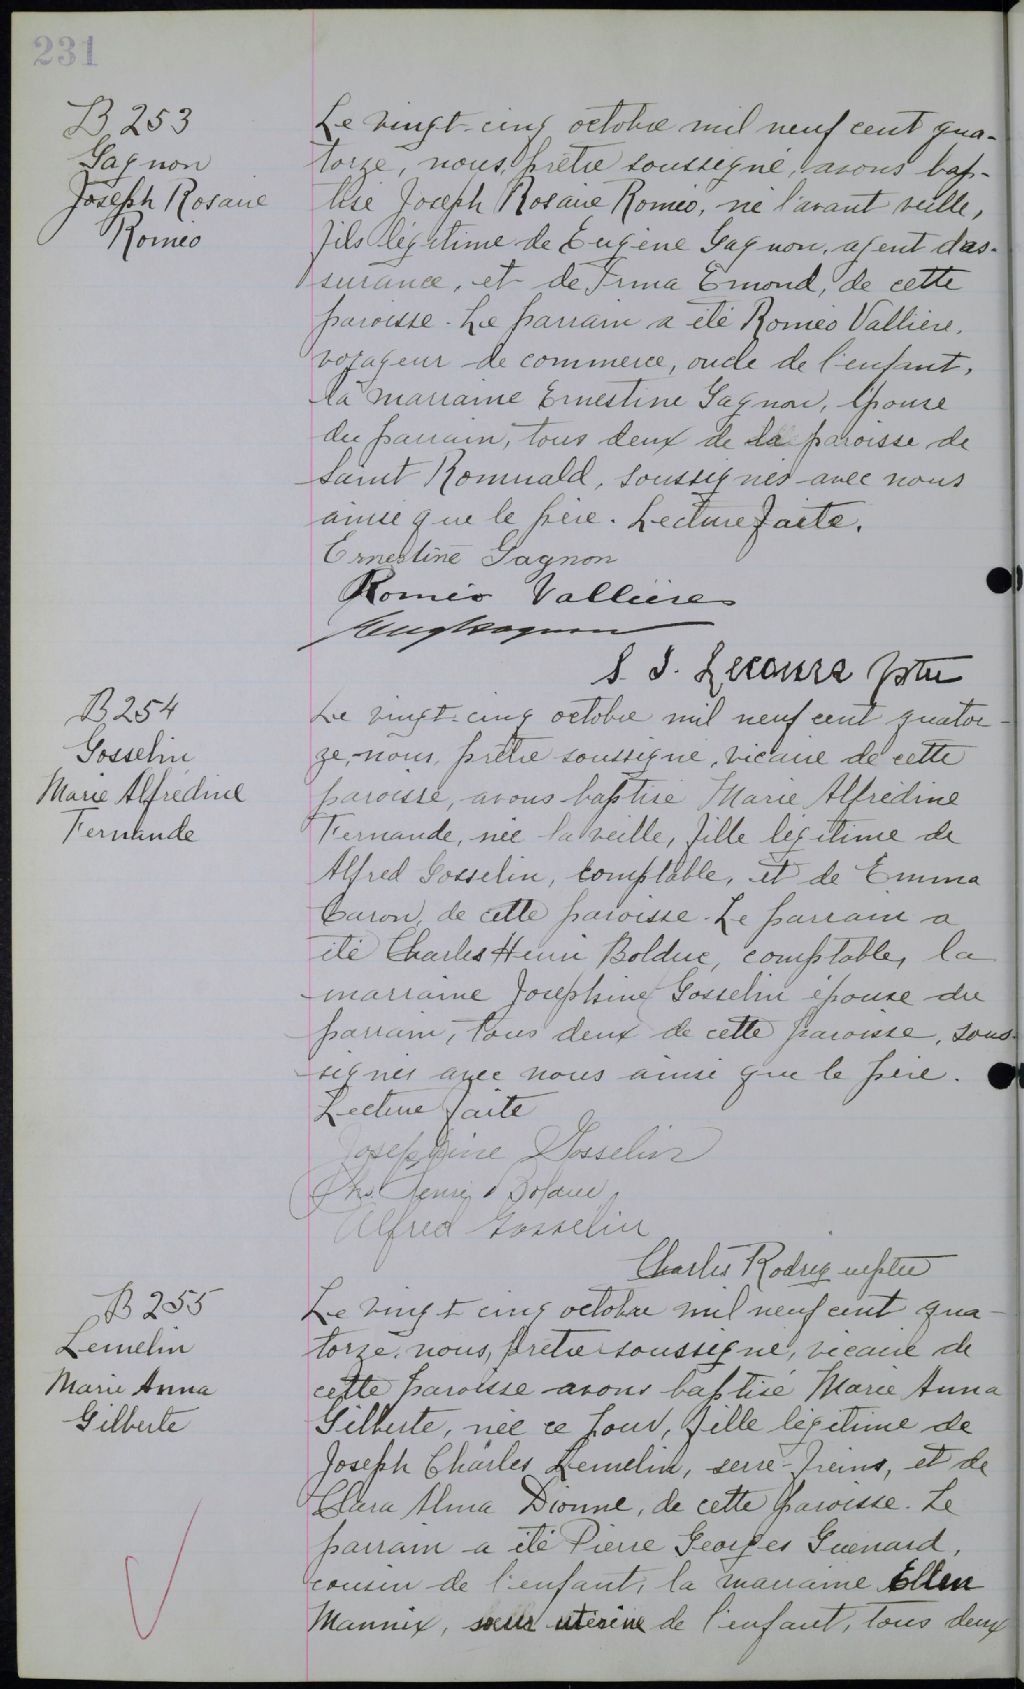 231
B 253
Gagnon
Joseph Rosaire
Roméo
Le vingt-cinq octobre mil neuf cent qua-
torze, nous, prêtre soussigné, avons bap-
tisé Joseph Rosaire Roméo, né l'avant veille,
fils légitime de Eugène Gagnon, agent d'as-
surance, et de Irma Emond, de cette
paroisse. Le parrain a été Roméo Vallière,
voyageur de commerce, oncle de l'enfant,
la marraine Ernestine Gagnon, épouse
du parrain, tous deux de la paroisse de
Saint Romuald, soussignés avec nous
ainsi que le père. Lecture faite.
Ernestine Gagnon
Roméo Vallières
Eug Gagnon
ptre
B 254
Gosselin
Marie Alfrédine
Fernande
Le vingt-cinq octobre mil neuf cent quator-
ze, nous, prêtre soussigné, vicaire de cette
paroisse, avons baptisé Marie Alfrédine
Fernande, née la veille, fille légitime de
Alfred Gosselin, comptable, et de Emma
Caron, de cette paroisse. Le parrain a
été Charles Henri Bolduc, comptable, la
marraine Josephine Gosselin épouse du
parrain, tous deux de cette paroisse, sous-
signés avec nous ainsi que le père.
Lecture faite
Josephine Gosselin
Chs Henri Bolduc
Alfred Gosselin
Charles Rodrigue ptre
B 255
Lemelin
Marie Anna
Gilberte
Le vingt cinq octobre mil neuf cent qua-
torze, nous, prêtre soussigné, vicaire de
cette paroisse avons baptisé Marie Anna
Gilberte, née ce jour, fille légitime de
Joseph Charles Lemelin, serre-freins, et de
Clara Alma Dionne, de cette paroisse. Le
parrain a été Pierre Georges Guenard,
cousin de l'enfant, la marraine Ellen
Mannix, soeur utérine de l'enfant, tous deux